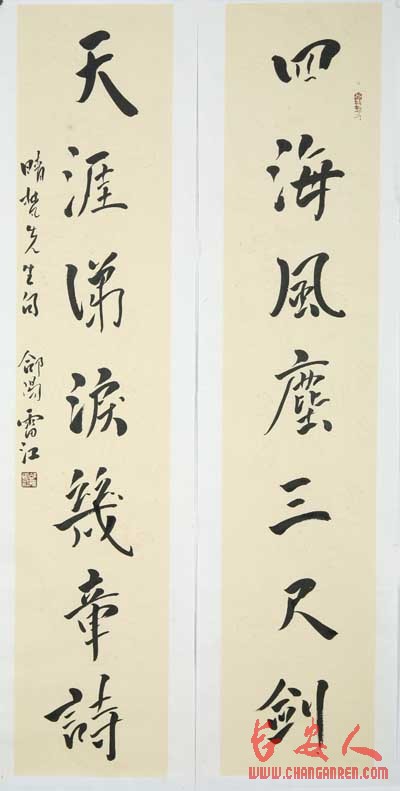 四海風塵三尺剑
天涯涕淚幾章詩
晴梵先生句 郃陽雷江
长安人
WWW.CHANGANREN.COM